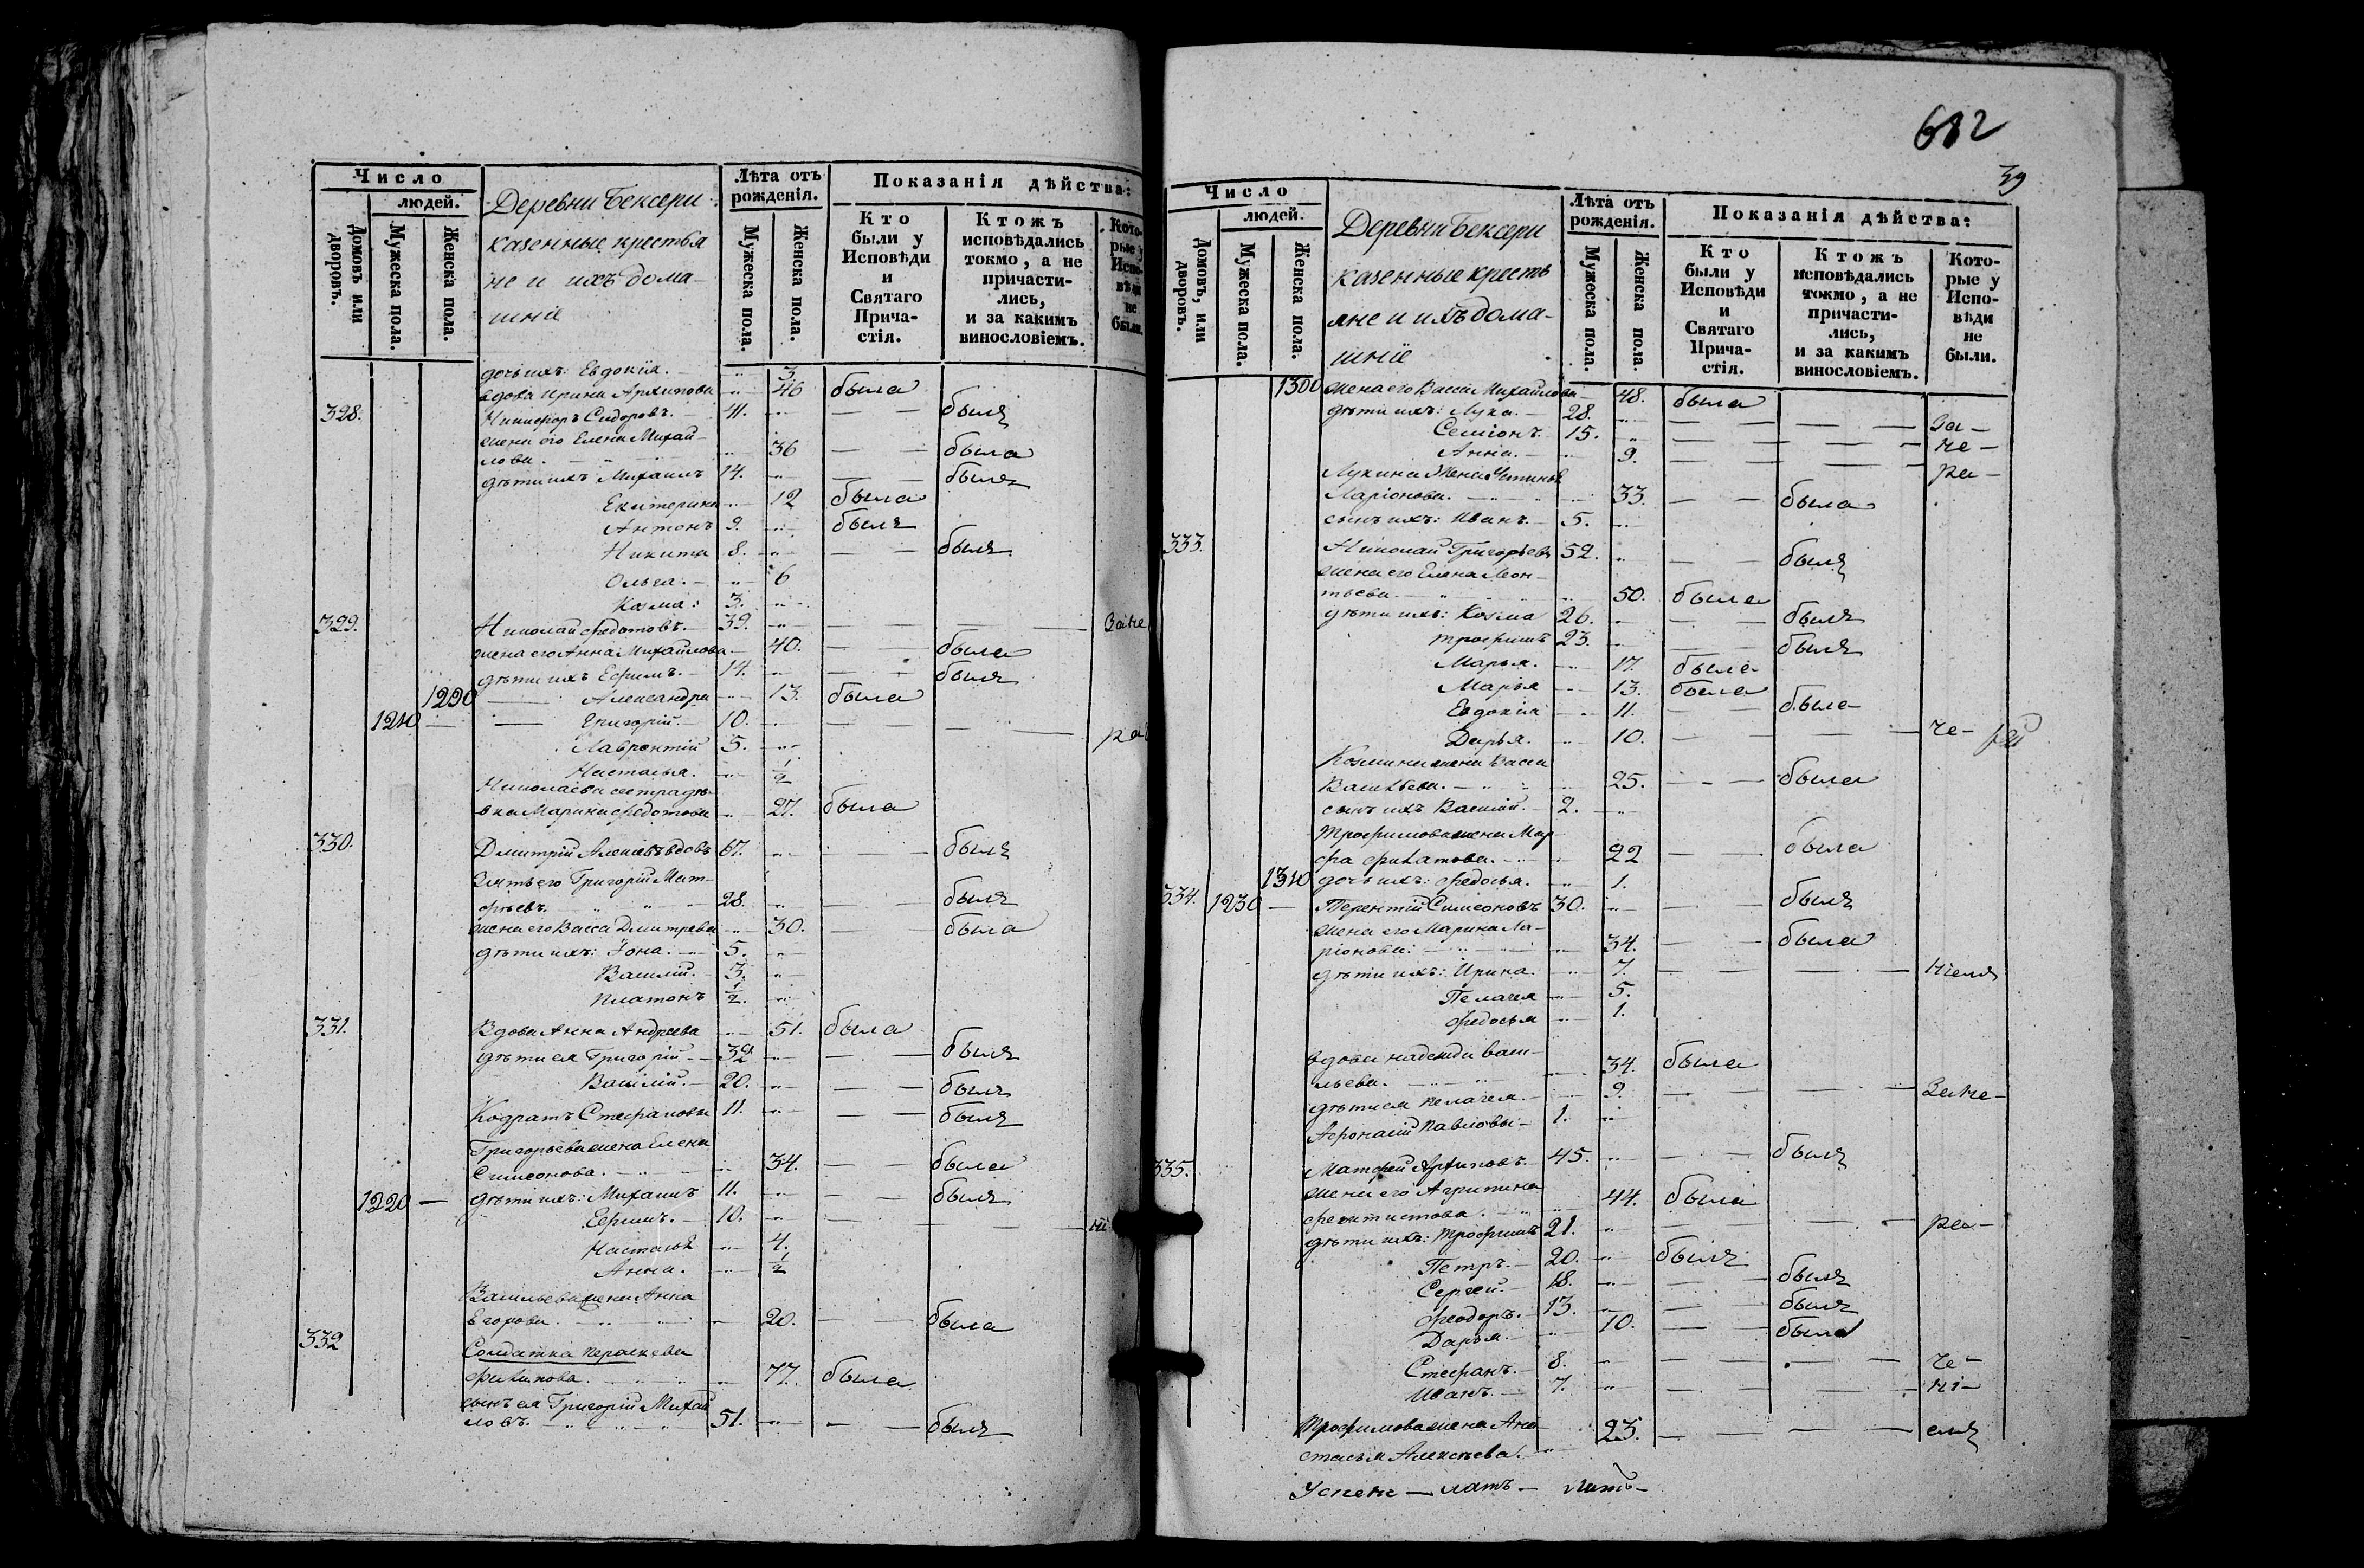 Число
людей.
Домовъ или дворовъ.
Мужеска пола.
Женска пола.
Деревни Бексери
казенные крестья
не и ихъ дома-
шніе
Лѣта отъ
рожденія.
Мужеска пола.
Женска пола.
Показанія дѣйства:
Кто
были у
Исповѣди
и
Святаго
Прича-
стія.
Ктожъ
исповѣдались
токмо, а не
причасти-
лись,
и за какимъ
винословіемъ.
Кото-
рые у
Испо-
вѣди
не
были.
дочь ихъ: Евдокія. 3.
вдова Ирина Архипова 46 была
328. Никифоръ Сидоровъ. 41. былъ
жена его Елена Михай-
лова. 36 была
дѣти ихъ Михаилъ 14. былъ
Екатерина 12 была
Антонъ 9. былъ
Никита 8. былъ
Ольга. 6
Козма: 3.
329. Николай Федотовъ. 39. Зане
жена его Анна Михайлова 40. была
дѣти ихъ Ефимъ. 14. былъ
1290 Александра 13. была
1210 Григорій. 10.
Лаврентій 5.
Настасья. 1/2
Николаева сестра дѣ-
вка Марина Федотова 27. была
330. Дмитрій вдовъ 67. былъ
Зять его Григорій Мат-
фѣевъ. 28. былъ
жена его Васса Дмитрева 30. была
дѣти ихъ: Іона. 5.
Василій. 3.
Платонъ 1/2.
331. Вдова Анна Андреева 51. была
дѣти ея Григорій 32 былъ
Василій. 20. былъ
Кодратъ Стефановы 11. былъ
Григорьева жена Елена
Симеонова. 34. была
1220 дѣти ихъ: Михаилъ 11. былъ
Ефимъ. 10.
Настасья 4.
Анна. 1/2
Васильева жена Анна
Егорова. 20. была
332 Солдатка Параскева
Филипова. 77. была
сынъ ея Григорій Михай
ловъ. 51. былъ
682
39
Число
людей.
Домовъ, или дворовъ.
Мужеска пола.
Женска пола.
Деревни Бексери
казенные кресть
яне и ихъ дома-
шніе
Лѣта отъ
рожденія.
Мужеска пола.
Женска пола.
Показанія дѣйства:
Кто
были у
Исповѣди
и
Святаго
Прича-
стія.
Ктожъ
исповѣдались
токмо, а не
причасти-
лись,
и за какимъ
винословіемъ.
Кото-
рые у
Испо-
вѣди
не
были.
1300 жена его Васса Михайлова 48. была
дѣти ихъ: Лука. 28. За-
Семіонъ 15. не-
Анна. 9. ра-
Лукина жена
Ларіонова. 33. была
сынъ ихъ: Иванъ. 5.
333. Николай Григорьевъ 52. былъ
жена его Елена Леон-
тьева 50. была
дѣти ихъ: Козма 26. былъ
Трофимъ 23. былъ
Марья. 17. была
Марья 13. была
Евдокія 11. была
Дарья. 10.
Козмина жена Васса
Васильева. 25. была
сынъ ихъ Василій. 2.
Трофимова жена Мар-
фа Филатова. 22 была
1310 дочь ихъ: Федосья. 1.
334. 1230 Терентій Симеоновъ 30. былъ
жена его Марина Ла-
ріонова: 34. была
дѣти ихъ: Ирина. 7. ніемъ
Пелагея 5.
Федосья 1.
вдова Надежда Васи-
льева. 34. была
дѣти ея Пелагея. 9. Зане-
Афонасій Павловы 1.
335. Матфей Архиповъ. 45. былъ
жена его Агрипина
44. была
дѣти ихъ: Трофимъ 21. ра-
Петръ. 20. былъ
Сергей. 18. былъ
Феодоръ. 13. былъ
Дарья. 10. была
Стефанъ. 8. че-
Иванъ. 7. ні-
Трофимова жена Ана-
стасья Алексѣева. 23. емъ